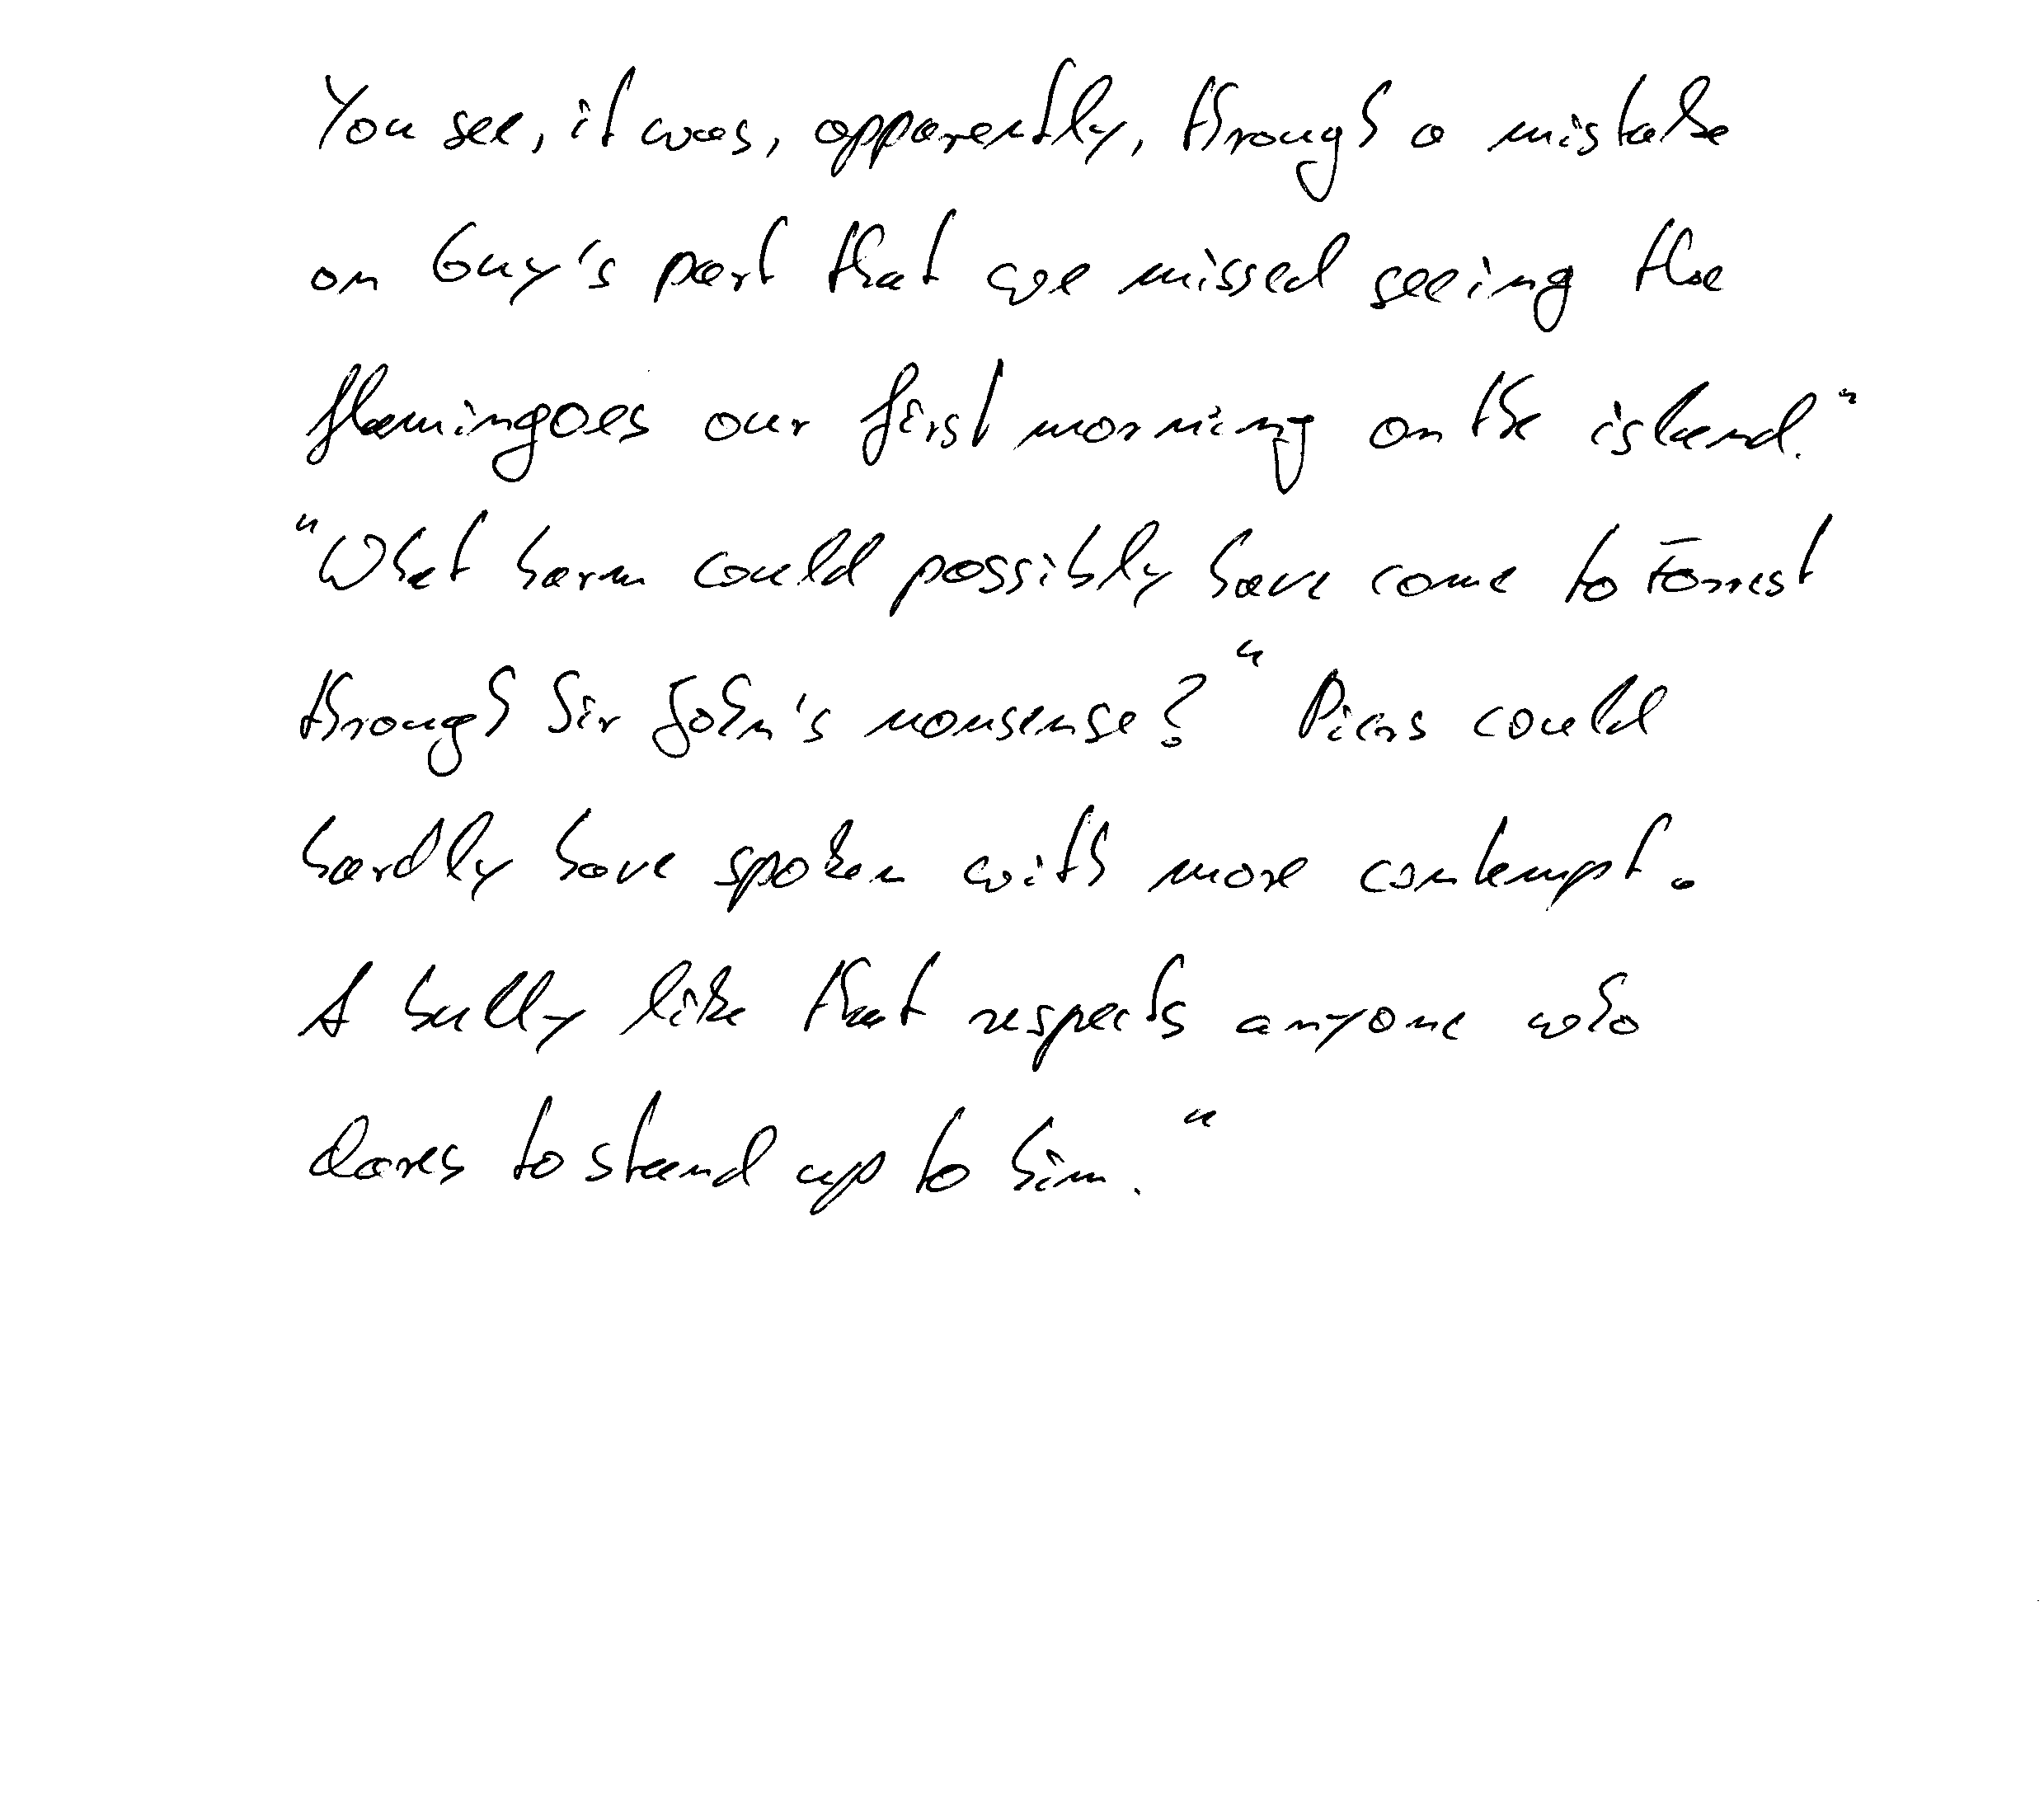 You see, it was, apparently, through a mistake
on Guy's part that we missed seeing the
flamingoes our first morning on the island."
"What harm could possibly have come to Forrest
through Sir John's nonsense?" Piers could
hardly have spoken with more contempt.
A bully like that respects anyone who
dares to stand up to him."